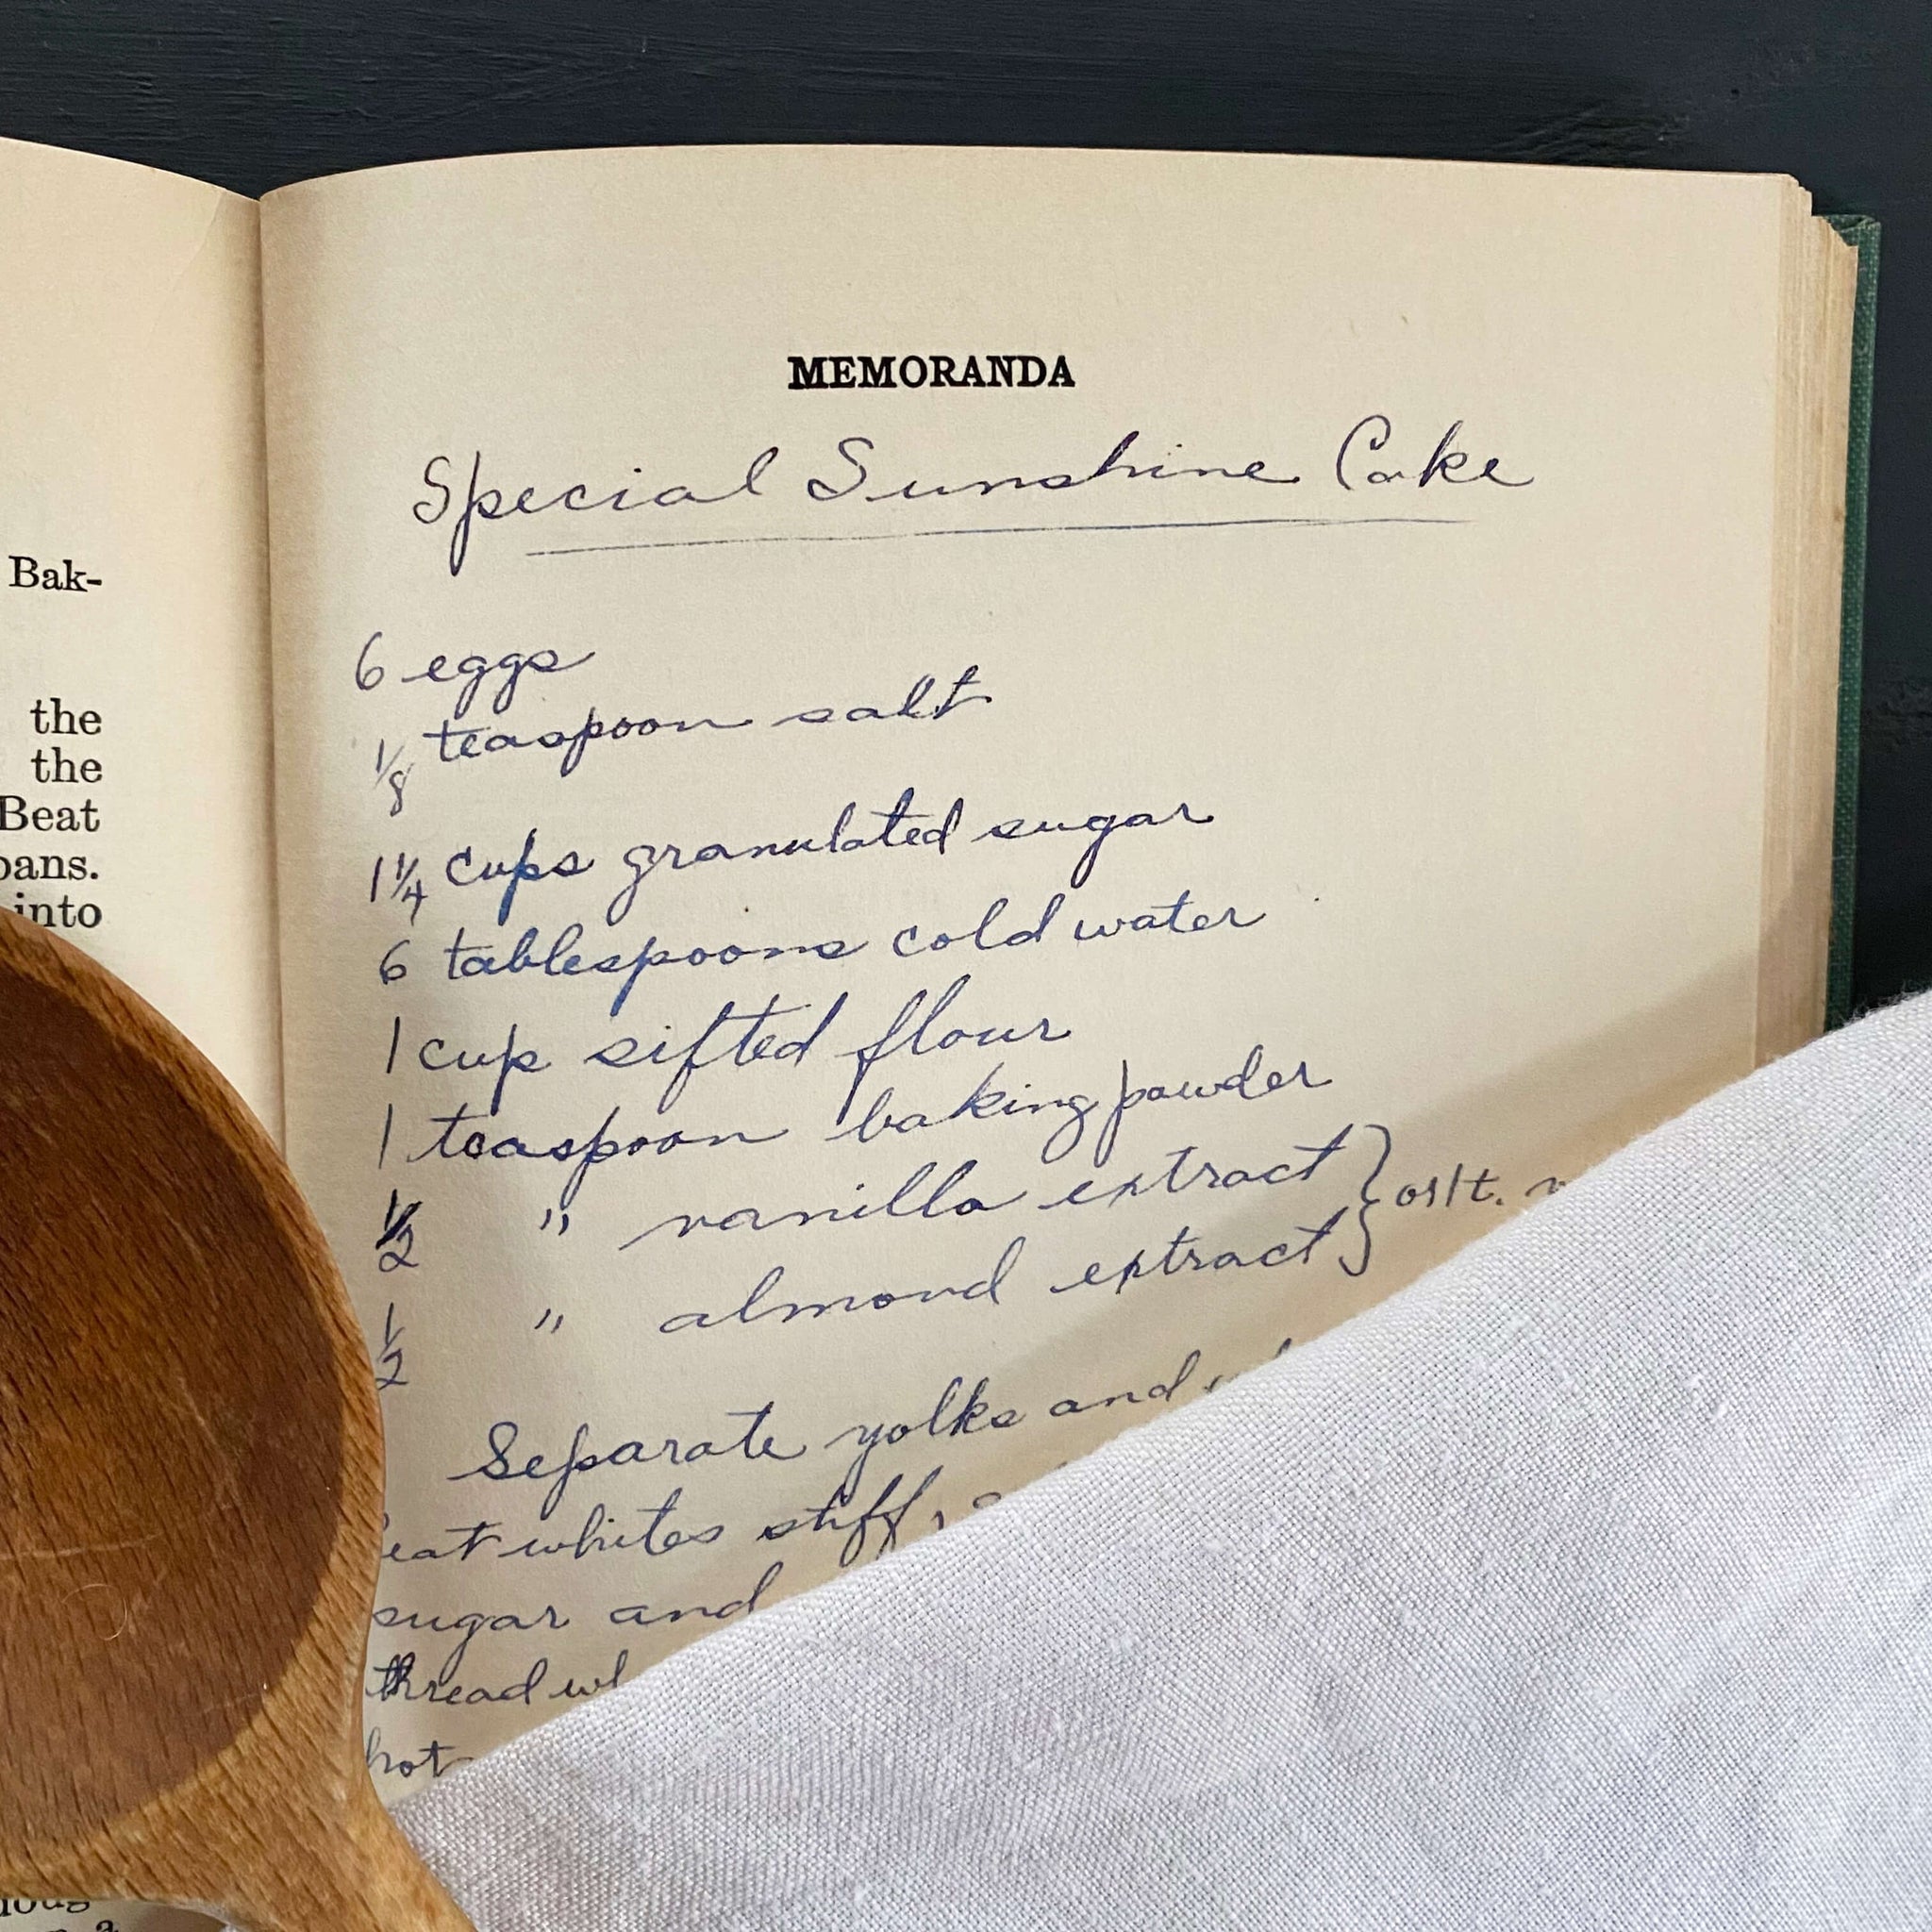 Bak-
the
the
Beat
into
MEMORANDA
Special Sunshine Cake
6 eggs
1/8 teaspoon salt
1 1/4 cups granulated sugar
6 tablespoons cold water
1 cup sifted flour
1 teaspoon baking powder
1/2 " vanilla extract } or 1 t.
1/2 " almond extract
Separate yolks and
eat whites stiff,
sugar and
thread
hot